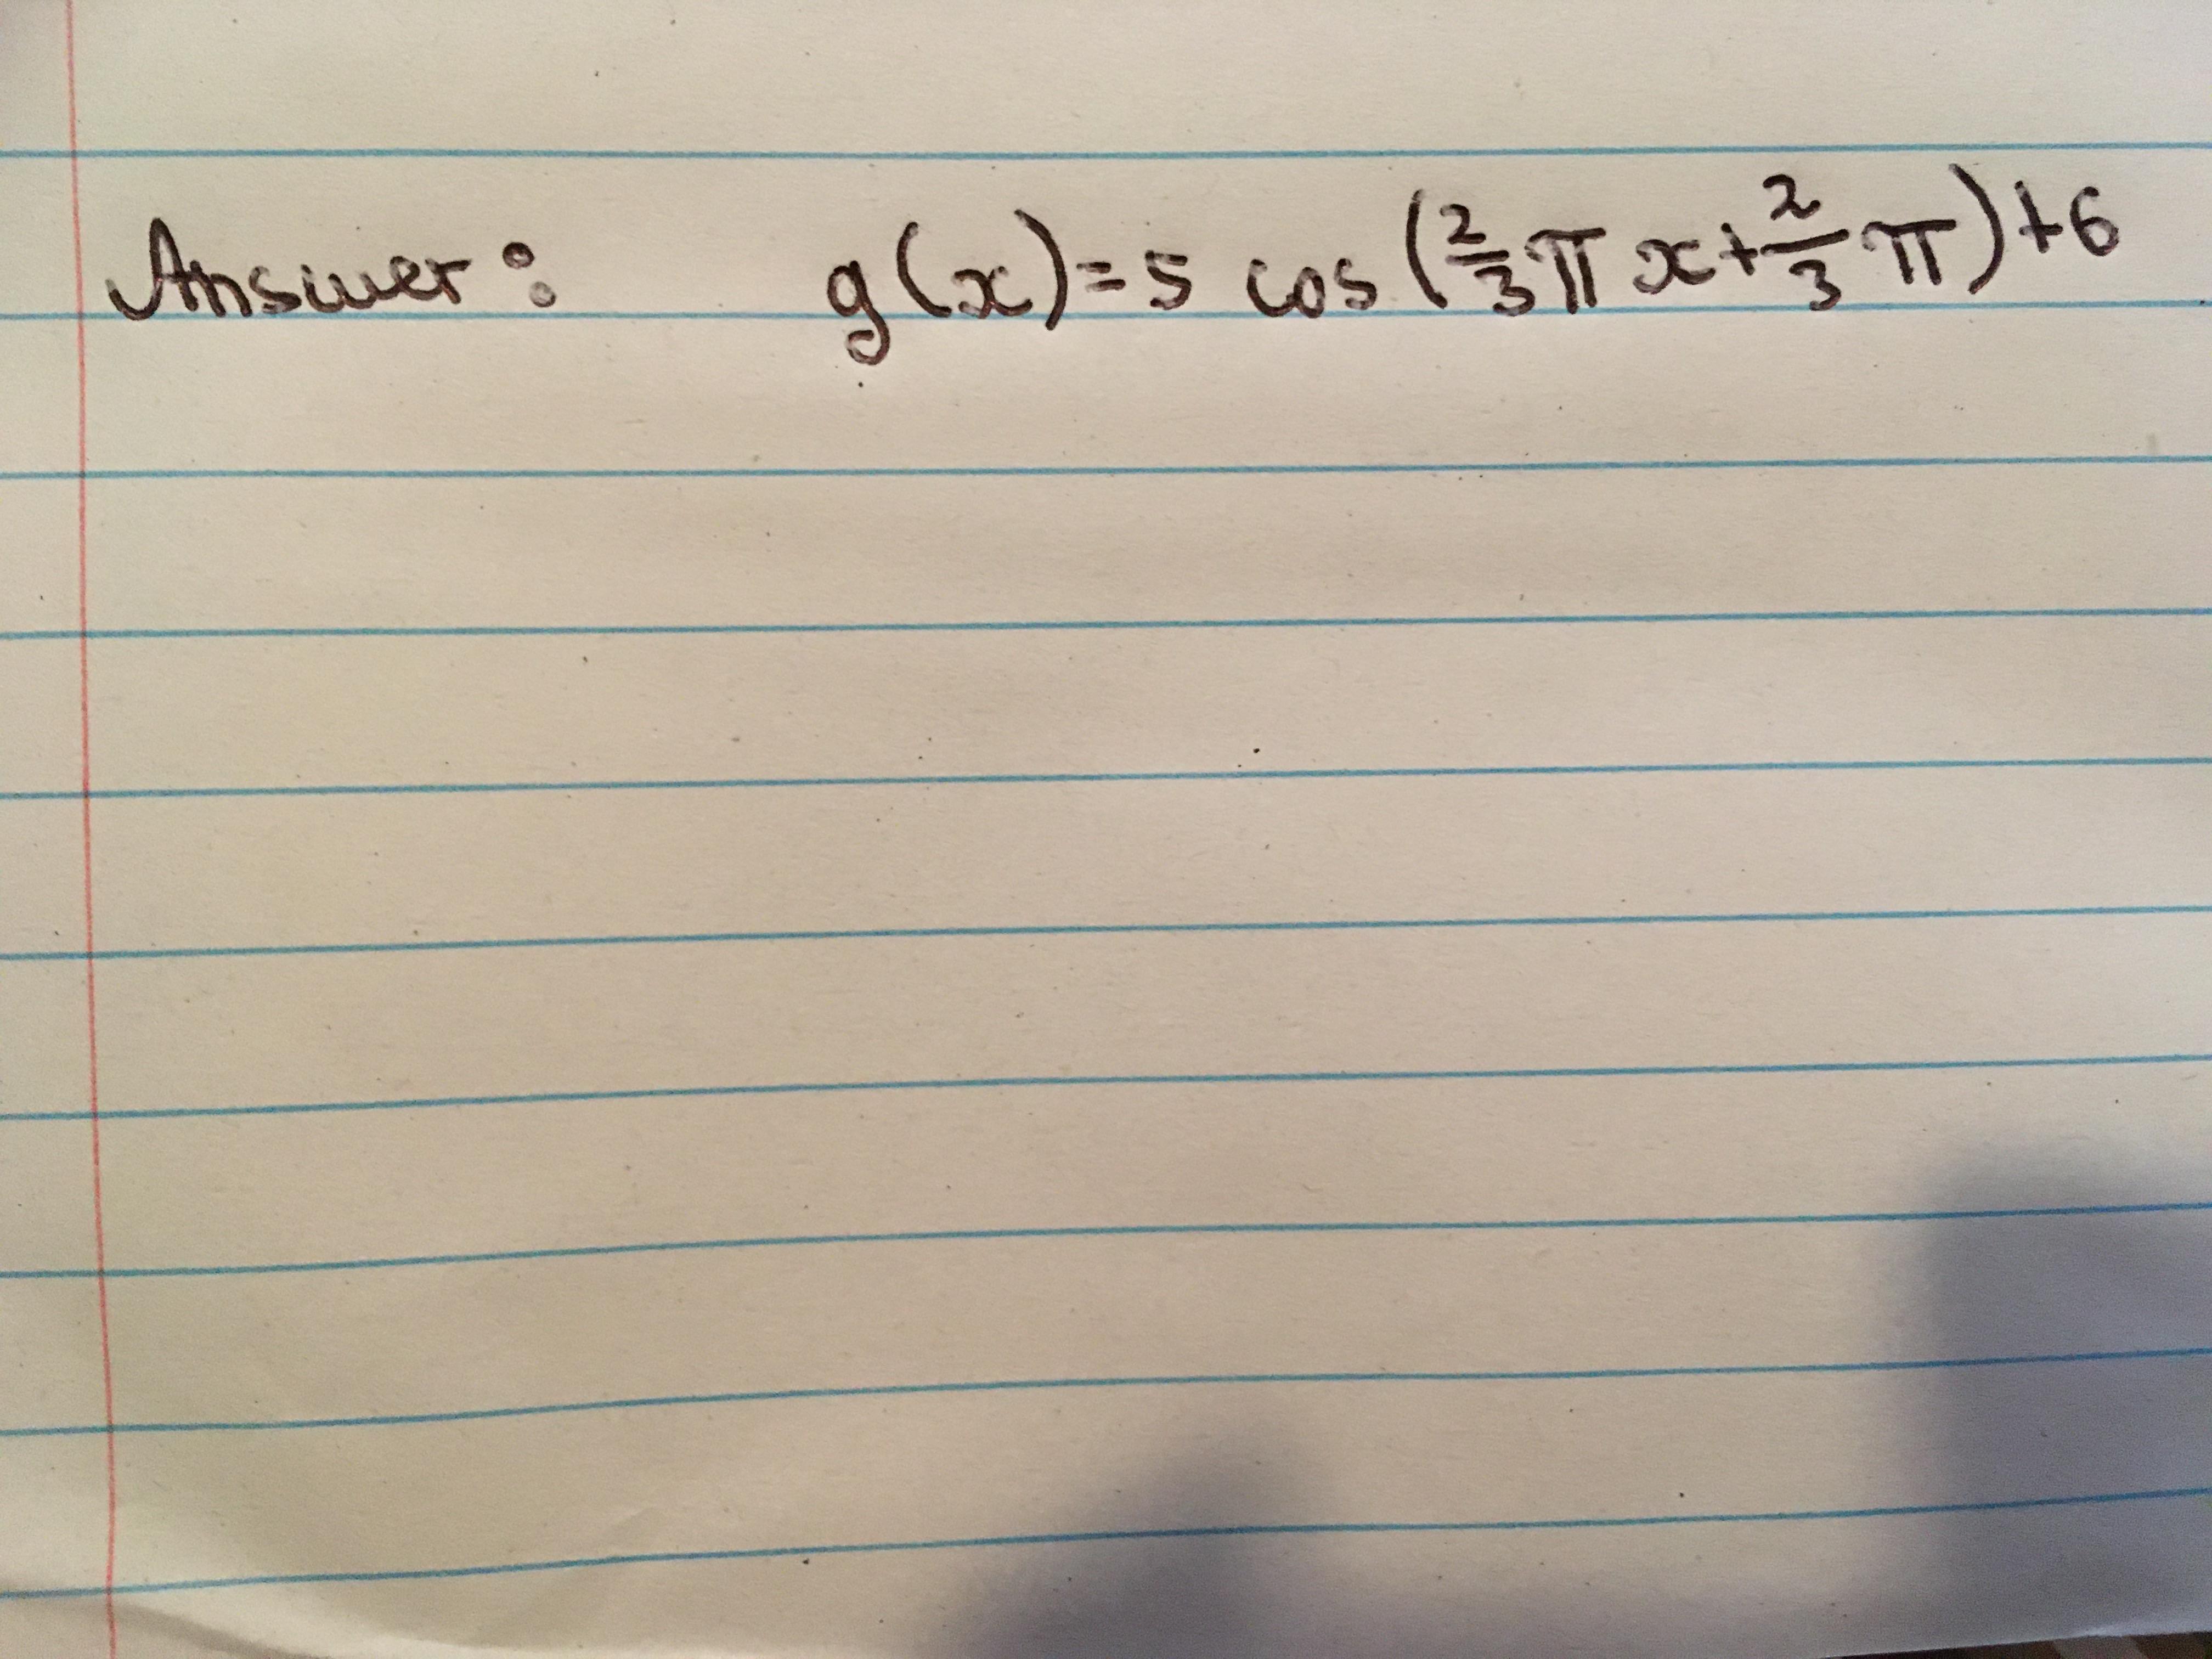 Answer: g(x)=5 cos(2/3 π x+2/3 π)+6